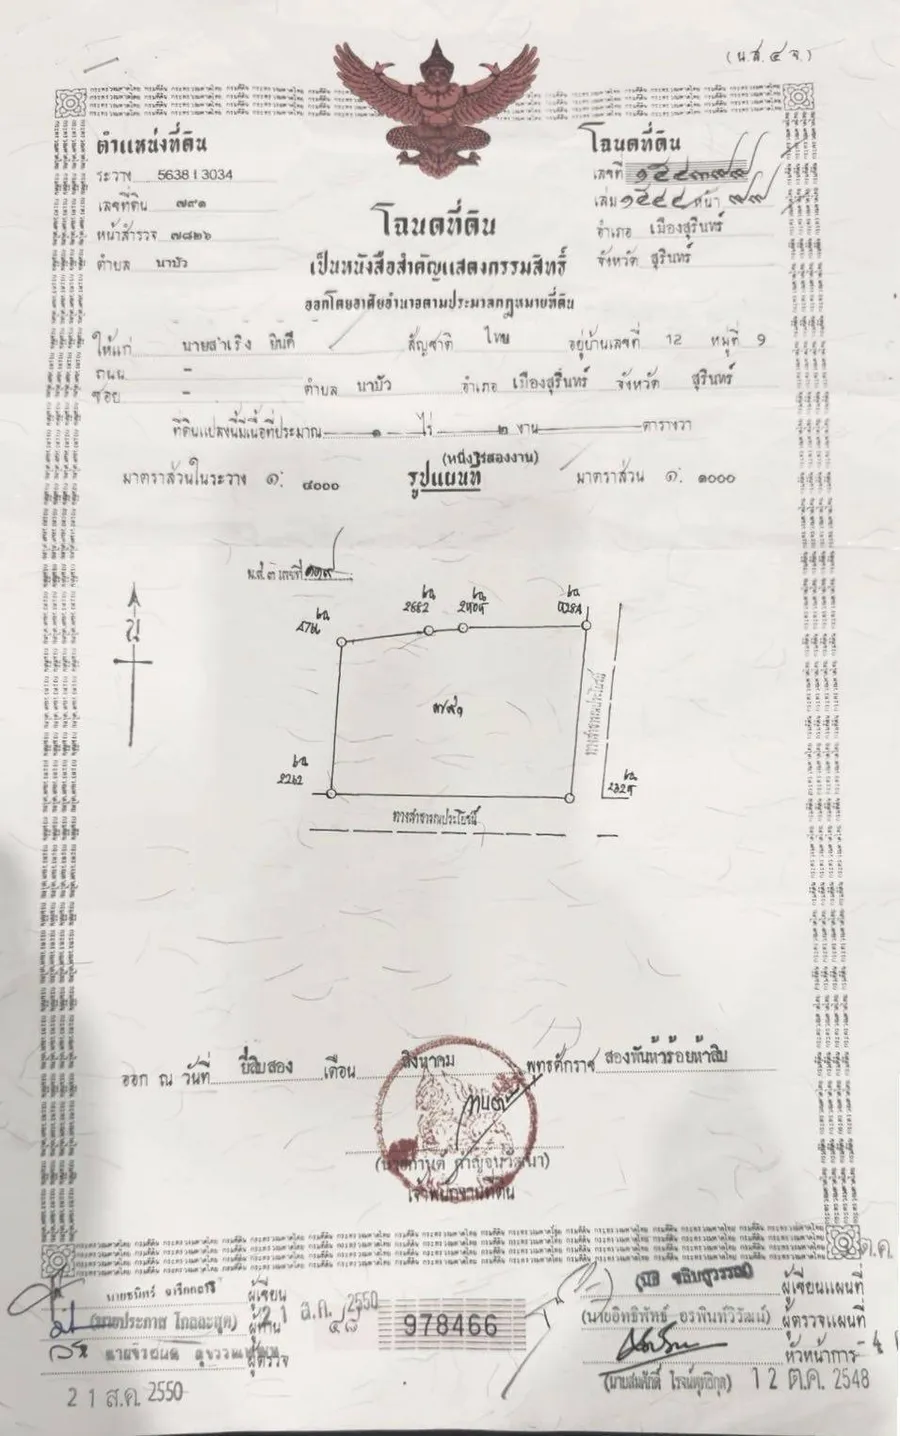 (น.ส.๔ จ.)
ตำแหน่งที่ดิน
ระวาง 5638 I 3034
เลขที่ดิน ๗๙๑
หน้าสำรวจ ๗๘๒๖
ตำบล นาบัว
โฉนดที่ดิน
เลขที่ ๑๕๔๓๙๙
เล่ม ๑๕๔๔ หน้า ๙๙
อำเภอ เมืองสุรินทร์
จังหวัด สุรินทร์
โฉนดที่ดิน
เป็นหนังสือสำคัญแสดงกรรมสิทธิ์
ออกโดยอาศัยอำนาจตามประมวลกฎหมายที่ดิน
ให้แก่ นายสำเริง ยินดี สัญชาติ ไทย อยู่บ้านเลขที่ 12 หมู่ที่ 9
ถนน -
ซอย - ตำบล นาบัว อำเภอ เมืองสุรินทร์ จังหวัด สุรินทร์
ที่ดินแปลงนี้มีเนื้อที่ประมาณ ๑ ไร่ ๒ งาน ตารางวา
(หนึ่งไร่สองงาน)
มาตราส่วนในระวาง ๑: ๔๐๐๐ รูปแผนที่ มาตราส่วน ๑: ๑๐๐๐
น.ส.๓ เลขที่
น
๗๙๑
ทางสาธารณประโยชน์
ทางสาธารณประโยชน์
ออก ณ วันที่ ยี่สิบสอง เดือน สิงหาคม พุทธศักราช สองพันห้าร้อยห้าสิบ
เจ้าพนักงานที่ดิน
ผู้เขียน
ผู้ทาน
ผู้ตรวจ
21 ส.ค. 2550
21 ส.ค. 2550
978466
ผู้เขียนแผนที่
(นายอิทธิพัทธ์ อรพินท์วิรัฒน์) ผู้ตรวจแผนที่
หัวหน้าการ
(นายสมศักดิ์ โรจน์พุทธิกุล) 12 ต.ค. 2548